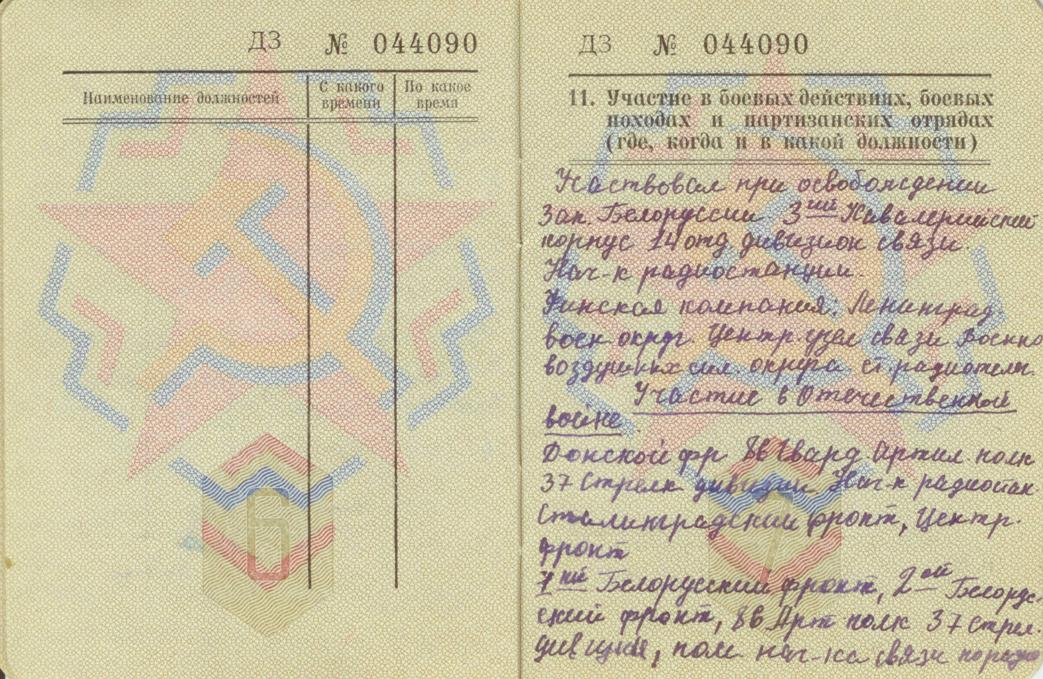 ДЗ № 044090
Наименование должностей
С какого времени
По какое время
6
ДЗ № 044090
11. Участие в боевых действиях, боевых
походах и партизанских отрядах
(где, когда и в какой должности)
Участвовал при освобождении
Зап. Белоруссии 3ий Кавалерийский
корпус 14 отд. дивизион связи.
Нач-к радиостанции.
Финская компания: Ленинград.
воен. округ. Центр. узел связи Военно
воздушных сил. округа ст. радиотел.
Участие в Отечественной
войне.
Донской фр. 86 Гвард Артил полк
37 Стрелк дивизии Нач-к радиостан.
Сталинградский фронт, Центр.
фронт
1ый Белорусский фронт, 2ой Белорус-
ский фронт, 86 Арт полк 37 стрел.
дивизии, пом нач-ка связи по радио
7